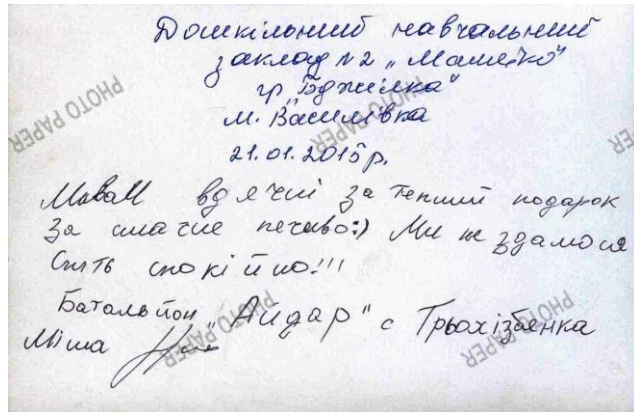 Дошкільний навчальний
заклад №2 „Малятко"
гр. „Бджілка"
м. Василівка
21.01.2015р.
Мивам вдячні за теплий подарок
За смачне печиво:) Ми не здамося
Спіть спокійно!!!
Батальйон "Айдар" с Трьохізбенка
Міша
PHOTO PAPER
PHOTO PAPER
PHOTO PAPER
PHOTO PAPER